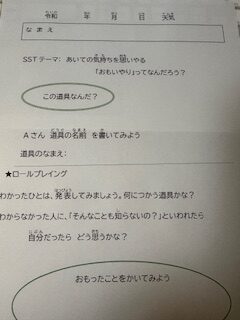 令和　年　月　日　天気
なまえ
SSTテーマ：あいての気持ちを思いやる
「おもいやり」ってなんだろう？
この道具なんだ？
Aさん　道具の名前を書いてみよう
道具のなまえ：
★ロールプレイング
わかったひとは、発表してみましょう。何につかう道具かな？
わからなかった人に、「そんなことも知らないの？」といわれたら
自分だったら　どう思うかな？
おもったことをかいてみよう